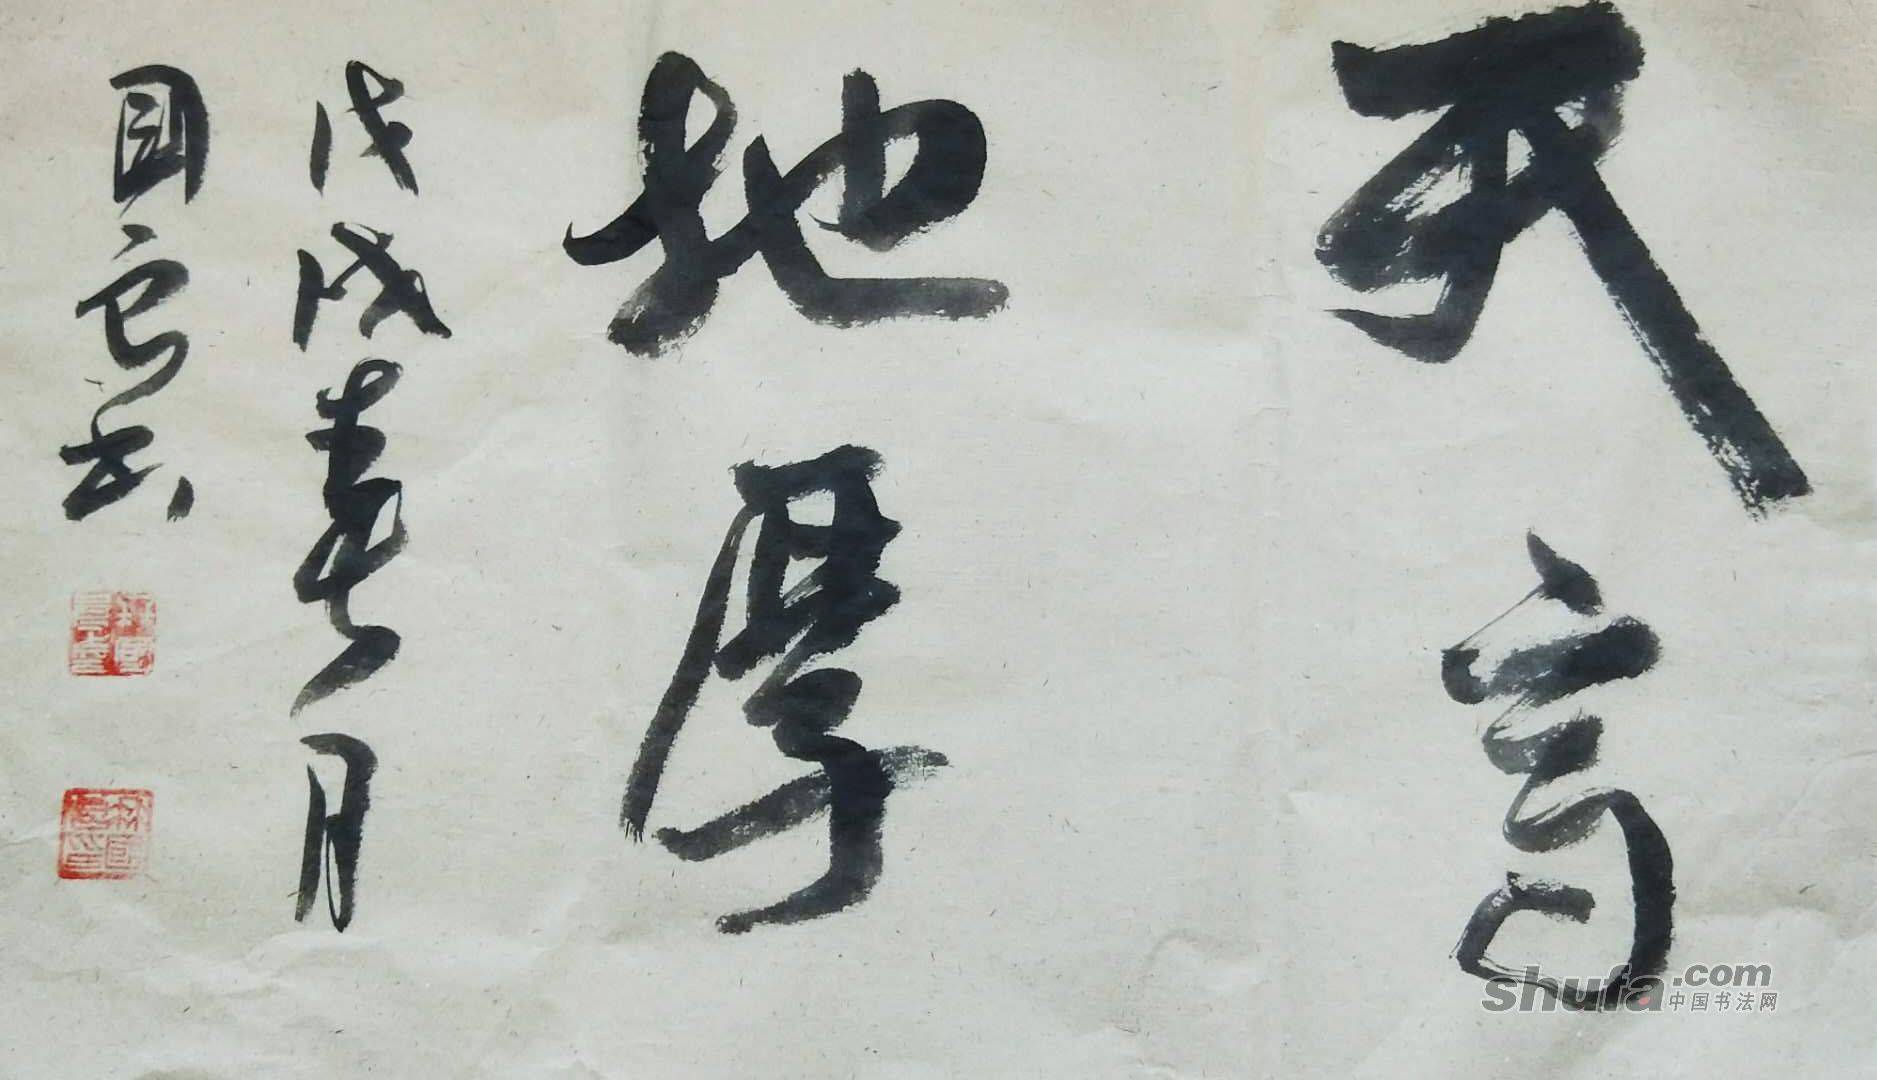 天高
地厚
戊戌春月
国良书
shufa.com
中国书法网